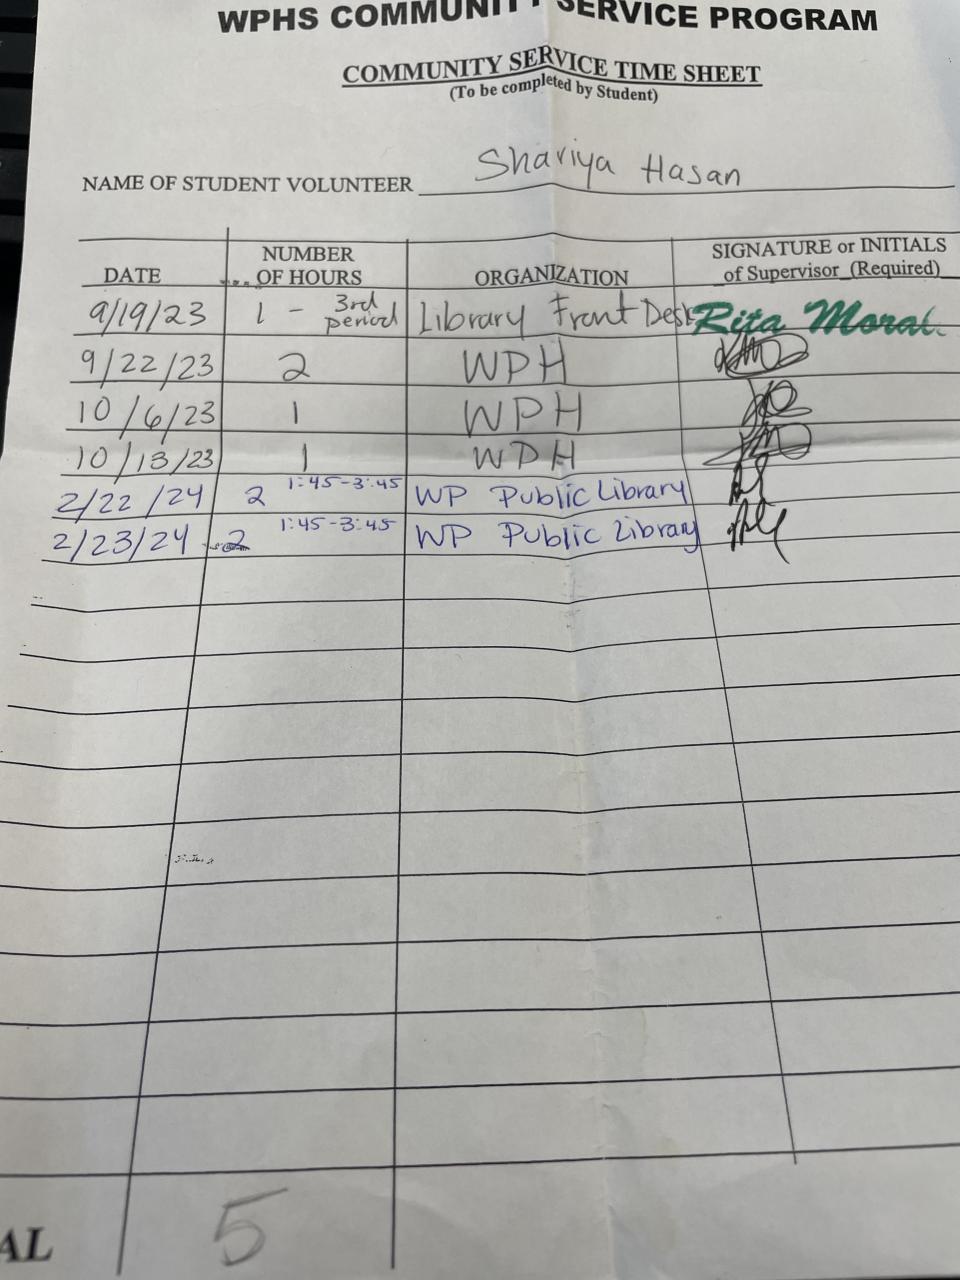 WPHS COMMUNITY SERVICE PROGRAM
COMMUNITY SERVICE TIME SHEET
(To be completed by Student)
NAME OF STUDENT VOLUNTEER Shariya Hasan
DATE NUMBER OF HOURS ORGANIZATION SIGNATURE or INITIALS of Supervisor (Required)
9/19/23 1 - 3rd period Library Front Desk Rita Moral.
9/22/23 2 WPH
10/6/23 1 WPH
10/13/23 1 WPH
2/22/24 2 1:45-3:45 WP Public Library
2/23/24 2 1:45-3:45 WP Public Library
AL 5